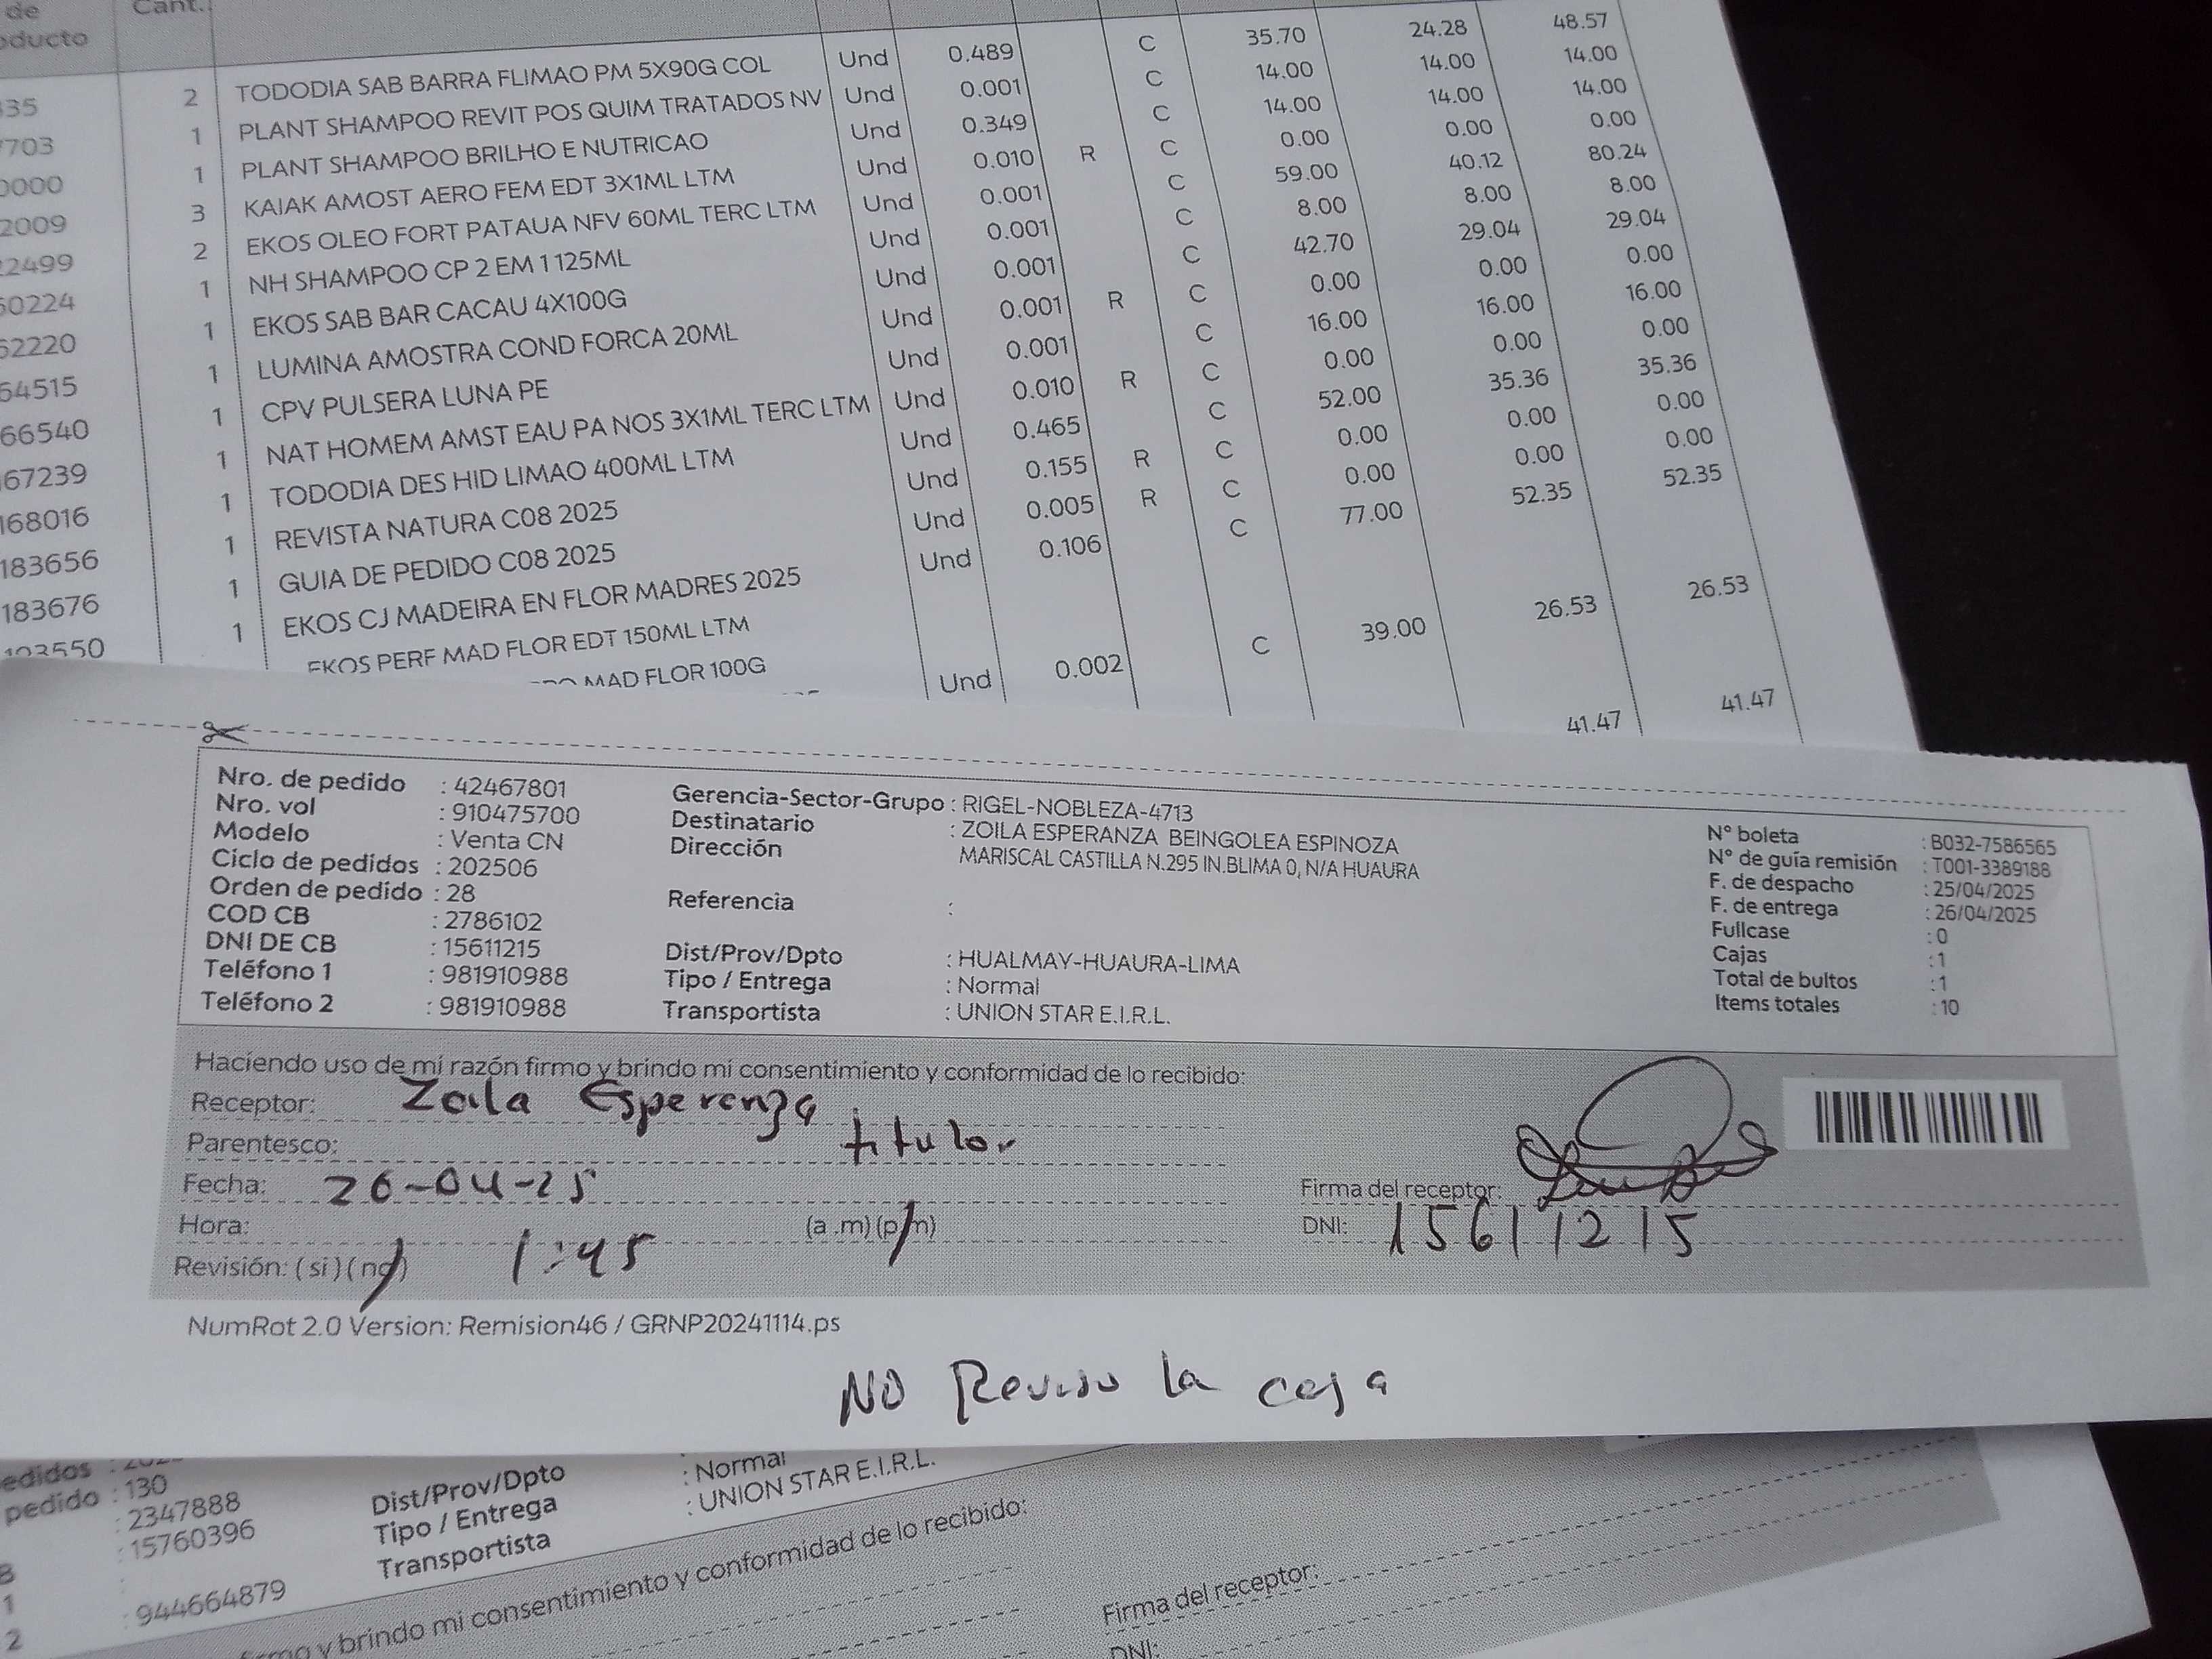 de
Cant.
oducto
335 2 TODODIA SAB BARRA FLIMAO PM 5X90G COL Und 0.489 C 35.70 24.28 48.57
7703 1 PLANT SHAMPOO REVIT POS QUIM TRATADOS NV Und 0.001 C 14.00 14.00 14.00
0000 1 PLANT SHAMPOO BRILHO E NUTRICAO Und 0.349 C 14.00 14.00 14.00
2009 3 KAIAK AMOST AERO FEM EDT 3X1ML LTM Und 0.010 R C 0.00 0.00 0.00
22499 2 EKOS OLEO FORT PATAUA NFV 60ML TERC LTM Und 0.001 C 59.00 40.12 80.24
60224 1 NH SHAMPOO CP 2 EM 1 125ML Und 0.001 C 8.00 8.00 8.00
62220 1 EKOS SAB BAR CACAU 4X100G Und 0.001 C 42.70 29.04 29.04
64515 1 LUMINA AMOSTRA COND FORCA 20ML Und 0.001 R C 0.00 0.00 0.00
66540 1 CPV PULSERA LUNA PE Und 0.001 C 16.00 16.00 16.00
167239 1 NAT HOMEM AMST EAU PA NOS 3X1ML TERC LTM Und 0.010 R C 0.00 0.00 0.00
168016 1 TODODIA DES HID LIMAO 400ML LTM Und 0.465 C 52.00 35.36 35.36
183656 1 REVISTA NATURA C08 2025 Und 0.155 R C 0.00 0.00 0.00
183676 1 GUIA DE PEDIDO C08 2025 Und 0.005 R C 0.00 0.00 0.00
193550 1 EKOS CJ MADEIRA EN FLOR MADRES 2025 Und 0.106 C 77.00 52.35 52.35
EKOS PERF MAD FLOR EDT 150ML LTM
MAD FLOR 100G Und 0.002 C 39.00 26.53 26.53
41.47 41.47
Nro. de pedido : 42467801
Nro. vol : 910475700
Modelo : Venta CN
Ciclo de pedidos : 202506
Orden de pedido : 28
COD CB : 2786102
DNI DE CB : 15611215
Teléfono 1 : 981910988
Teléfono 2 : 981910988
Gerencia-Sector-Grupo : RIGEL-NOBLEZA-4713
Destinatario : ZOILA ESPERANZA BEINGOLEA ESPINOZA
Dirección MARISCAL CASTILLA N.295 IN.BLIMA 0, N/A HUAURA
Referencia :
Dist/Prov/Dpto : HUALMAY-HUAURA-LIMA
Tipo / Entrega : Normal
Transportista : UNION STAR E.I.R.L.
N° boleta : B032-7586565
N° de guía remisión : T001-3389188
F. de despacho : 25/04/2025
F. de entrega : 26/04/2025
Fullcase : 0
Cajas : 1
Total de bultos : 1
Items totales : 10
Haciendo uso de mi razón firmo y brindo mi consentimiento y conformidad de lo recibido:
Receptor: Zoila Esperanza
Parentesco: titular
Fecha: 26-04-25
Hora: 1:45 (a .m) (p.m)
Revisión: ( si ) ( no )
Firma del receptor:
DNI: 15611215
NumRot 2.0 Version: Remision46 / GRNP20241114.ps
NO Reviso la caja
edidos
pedido : 130
: 2347888
: 15760396
: 944664879
Dist/Prov/Dpto
Tipo / Entrega : Normal
Transportista : UNION STAR E.I.R.L.
firmo y brindo mi consentimiento y conformidad de lo recibido:
Firma del receptor:
DNI: